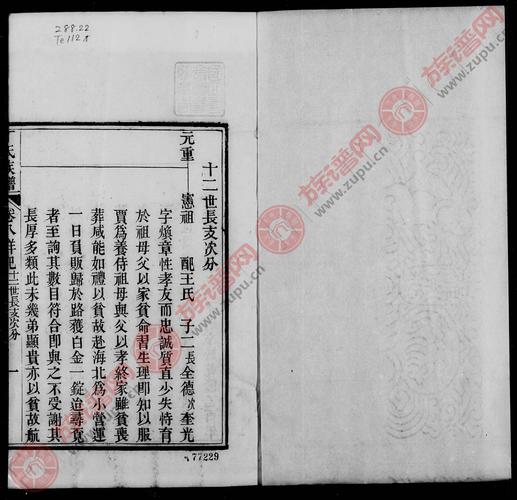 288.22
Te112.8
十二世長支次分
元重 憲祖 配王氏 子二長全德次奎光
字塡章性孝友而忠誠質直少失恃育
於祖母父以家貧命習生理卽知以服
賈爲養侍祖母與父以孝終家雖貧喪
葬咸能如禮以貧故赴海北爲小營運
一日負販歸於路獲白金一錠迨尋覓
者至詢其數目符合卽與之不受謝其
長厚多類此未幾弟顯貴亦以貧故航
氏族譜 卷八詳記十二世長支次分 一
77229
族谱网
www.zupu.cn
族谱网
www.zupu.cn
族谱网
www.zupu.cn